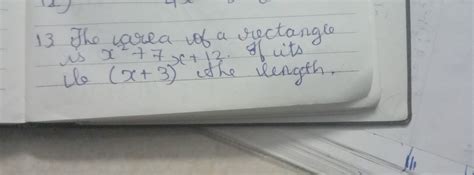 13 The area of a rectangle
is x² + 7x + 12. If its
be (x+3) the length.